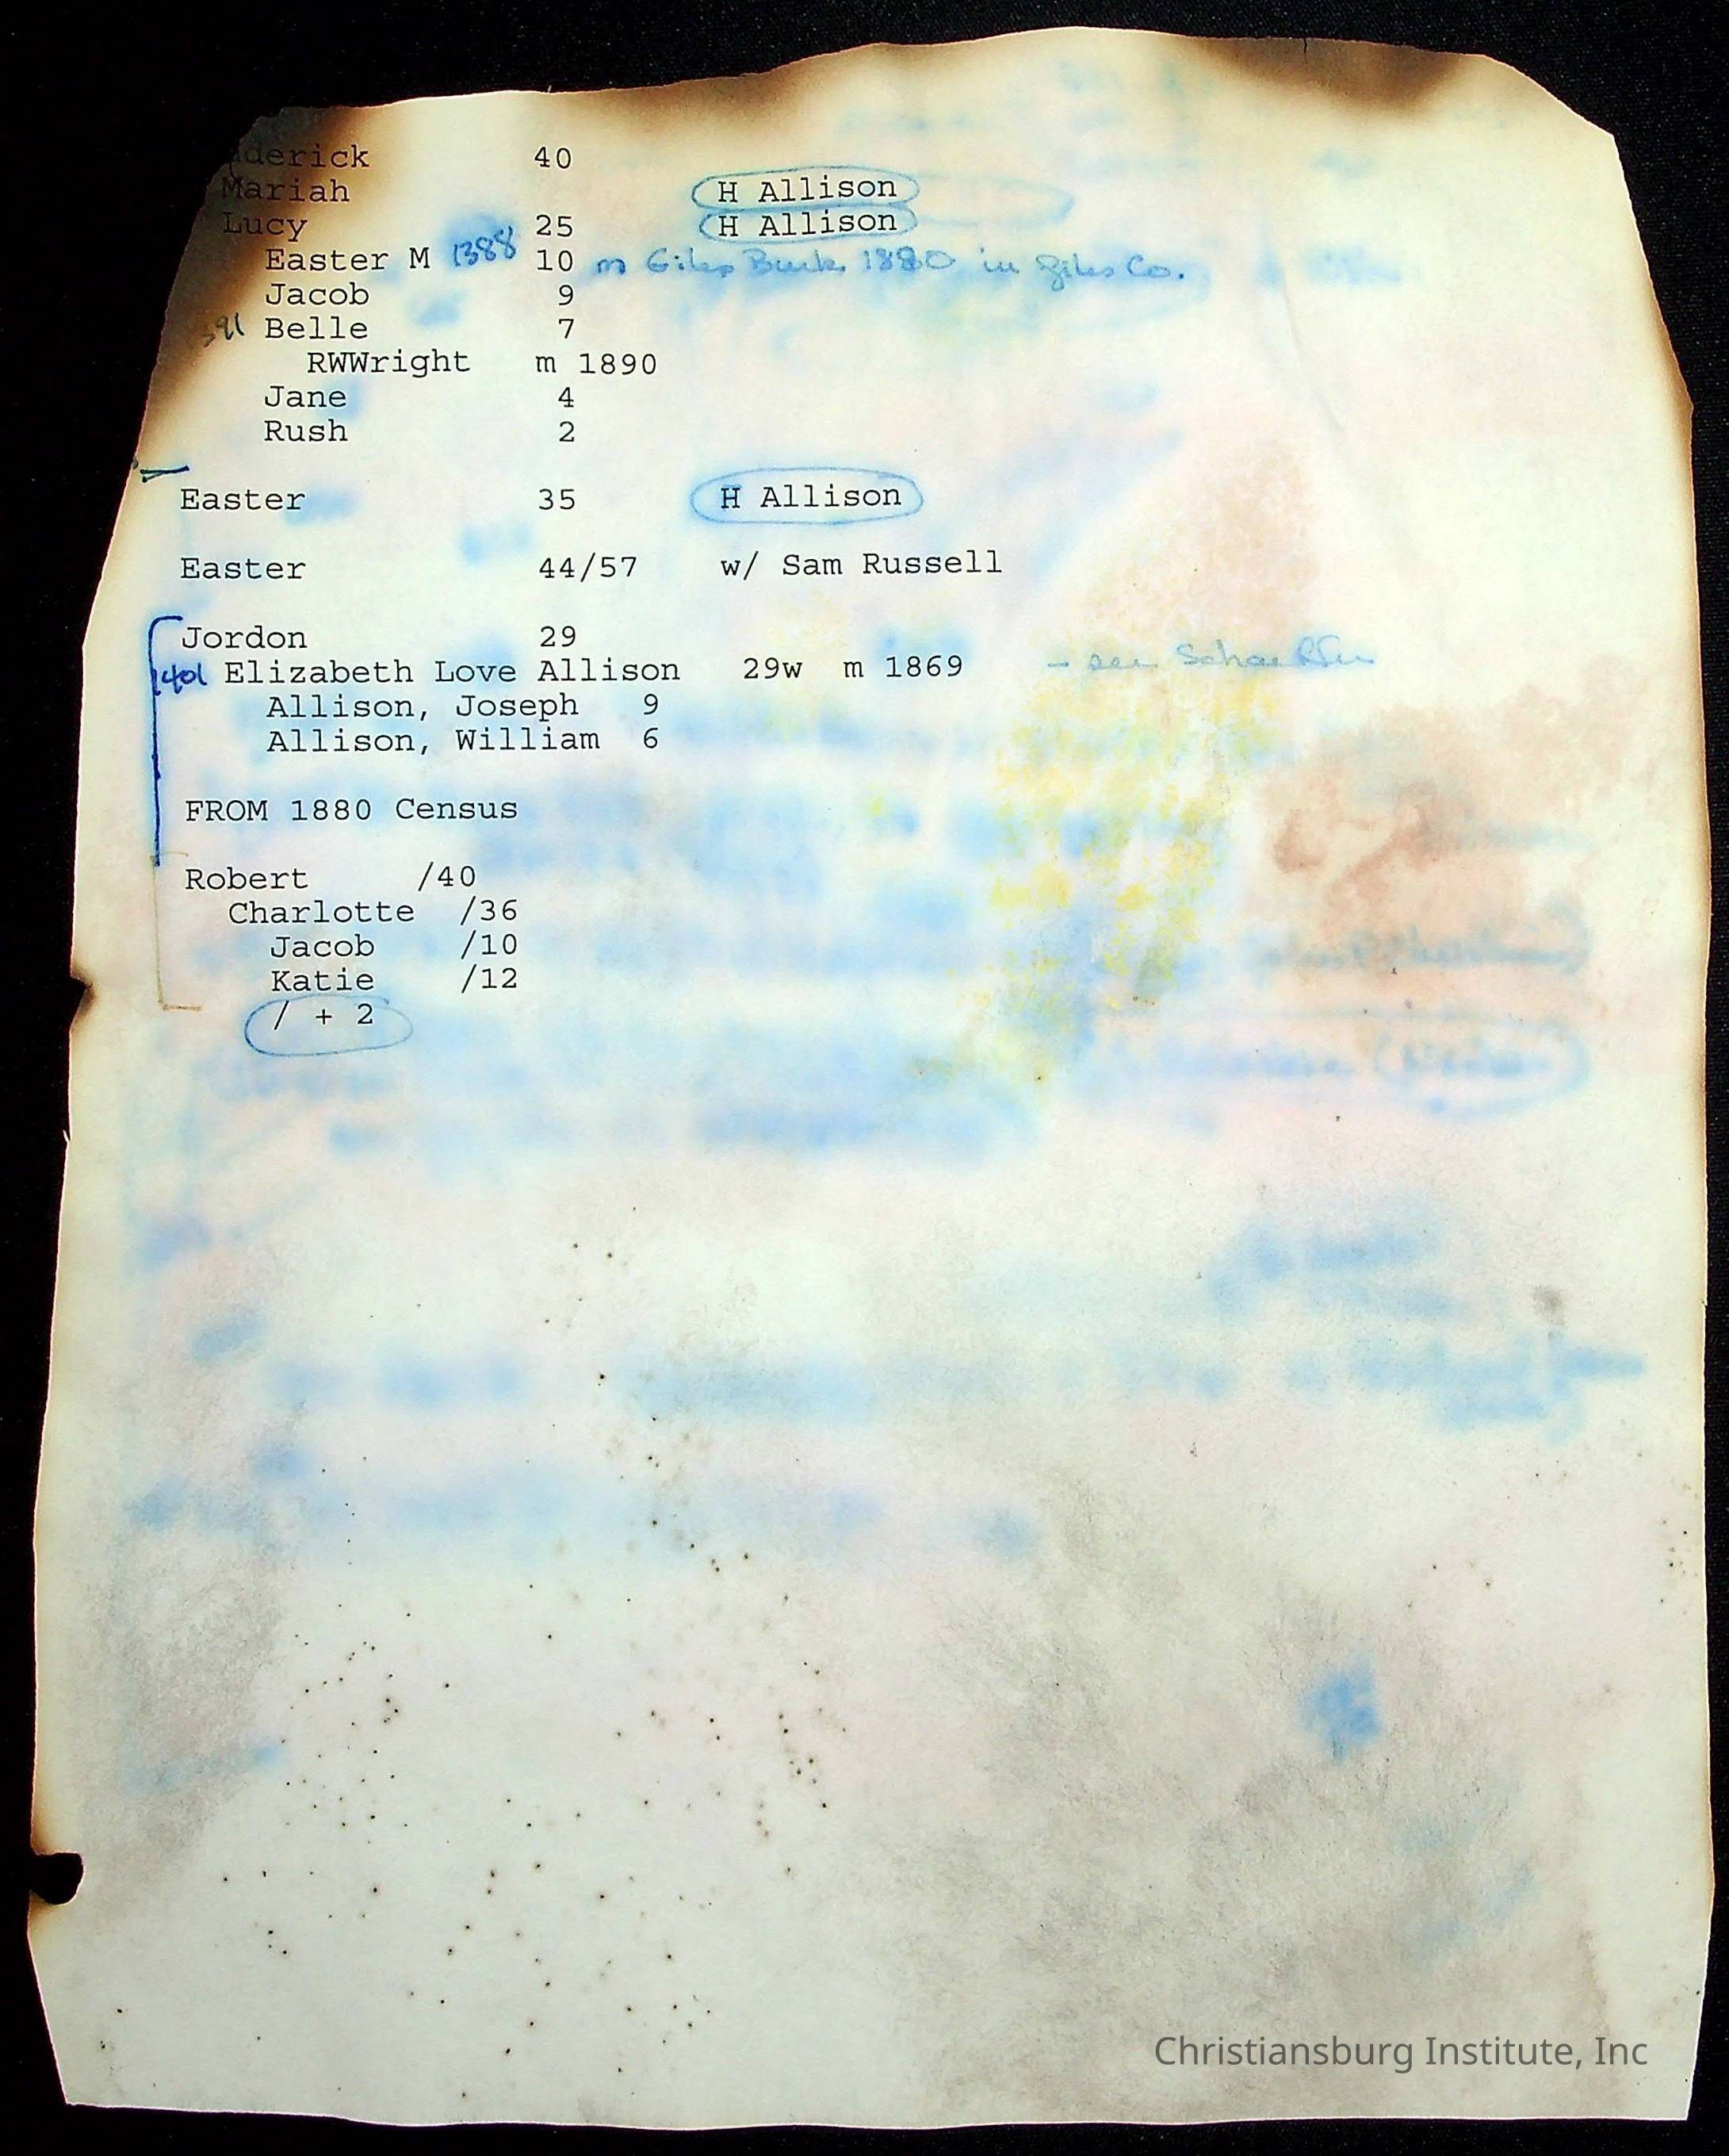 derick 40
Mariah H Allison
Lucy 25 H Allison
Easter M 1388 10 m Giles Burks 1880 in Giles Co.
Jacob 9
391 Belle 7
RWWright m 1890
Jane 4
Rush 2
Easter 35 H Allison
Easter 44/57 w/ Sam Russell
Jordon 29
1401 Elizabeth Love Allison 29w m 1869 - see
Allison, Joseph 9
Allison, William 6
FROM 1880 Census
Robert /40
Charlotte /36
Jacob /10
Katie /12
/ + 2
Christiansburg Institute, Inc